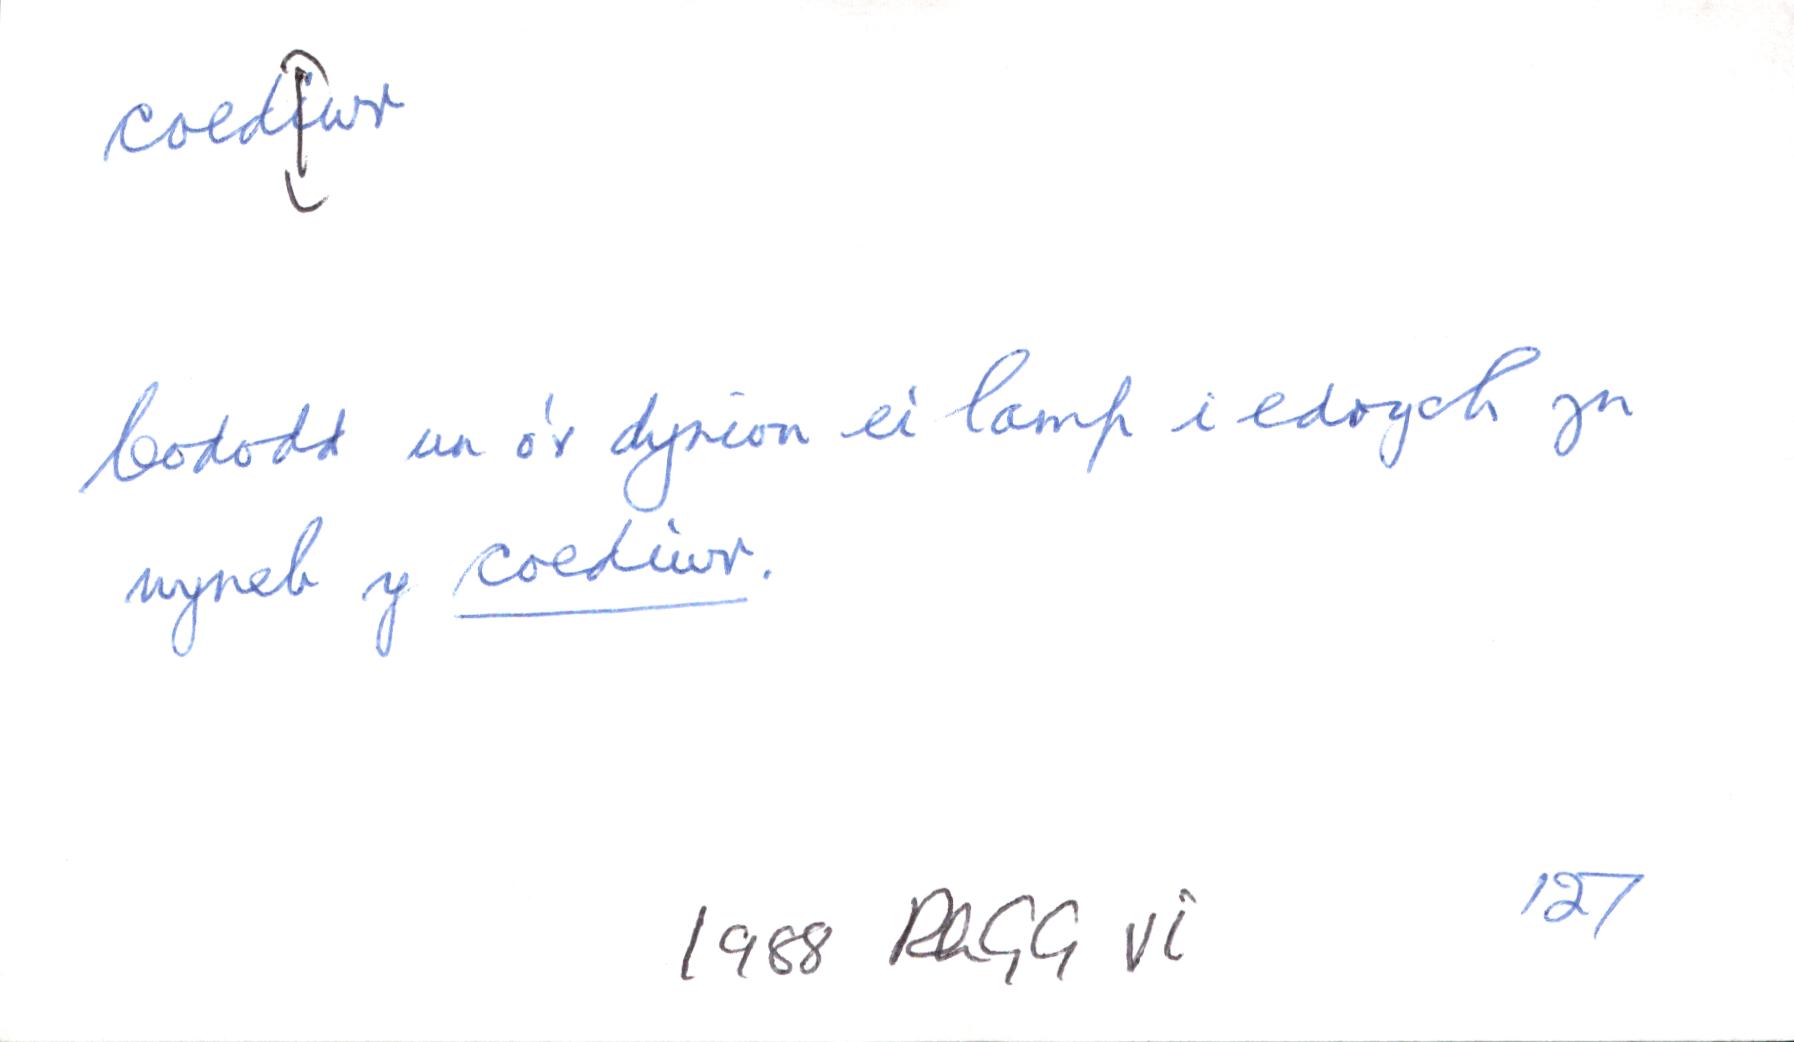 coediwr
Cododd un o'r dynion ei lamp i edrych yn
wyneb y coediwr.
127
1988 RhGG vi